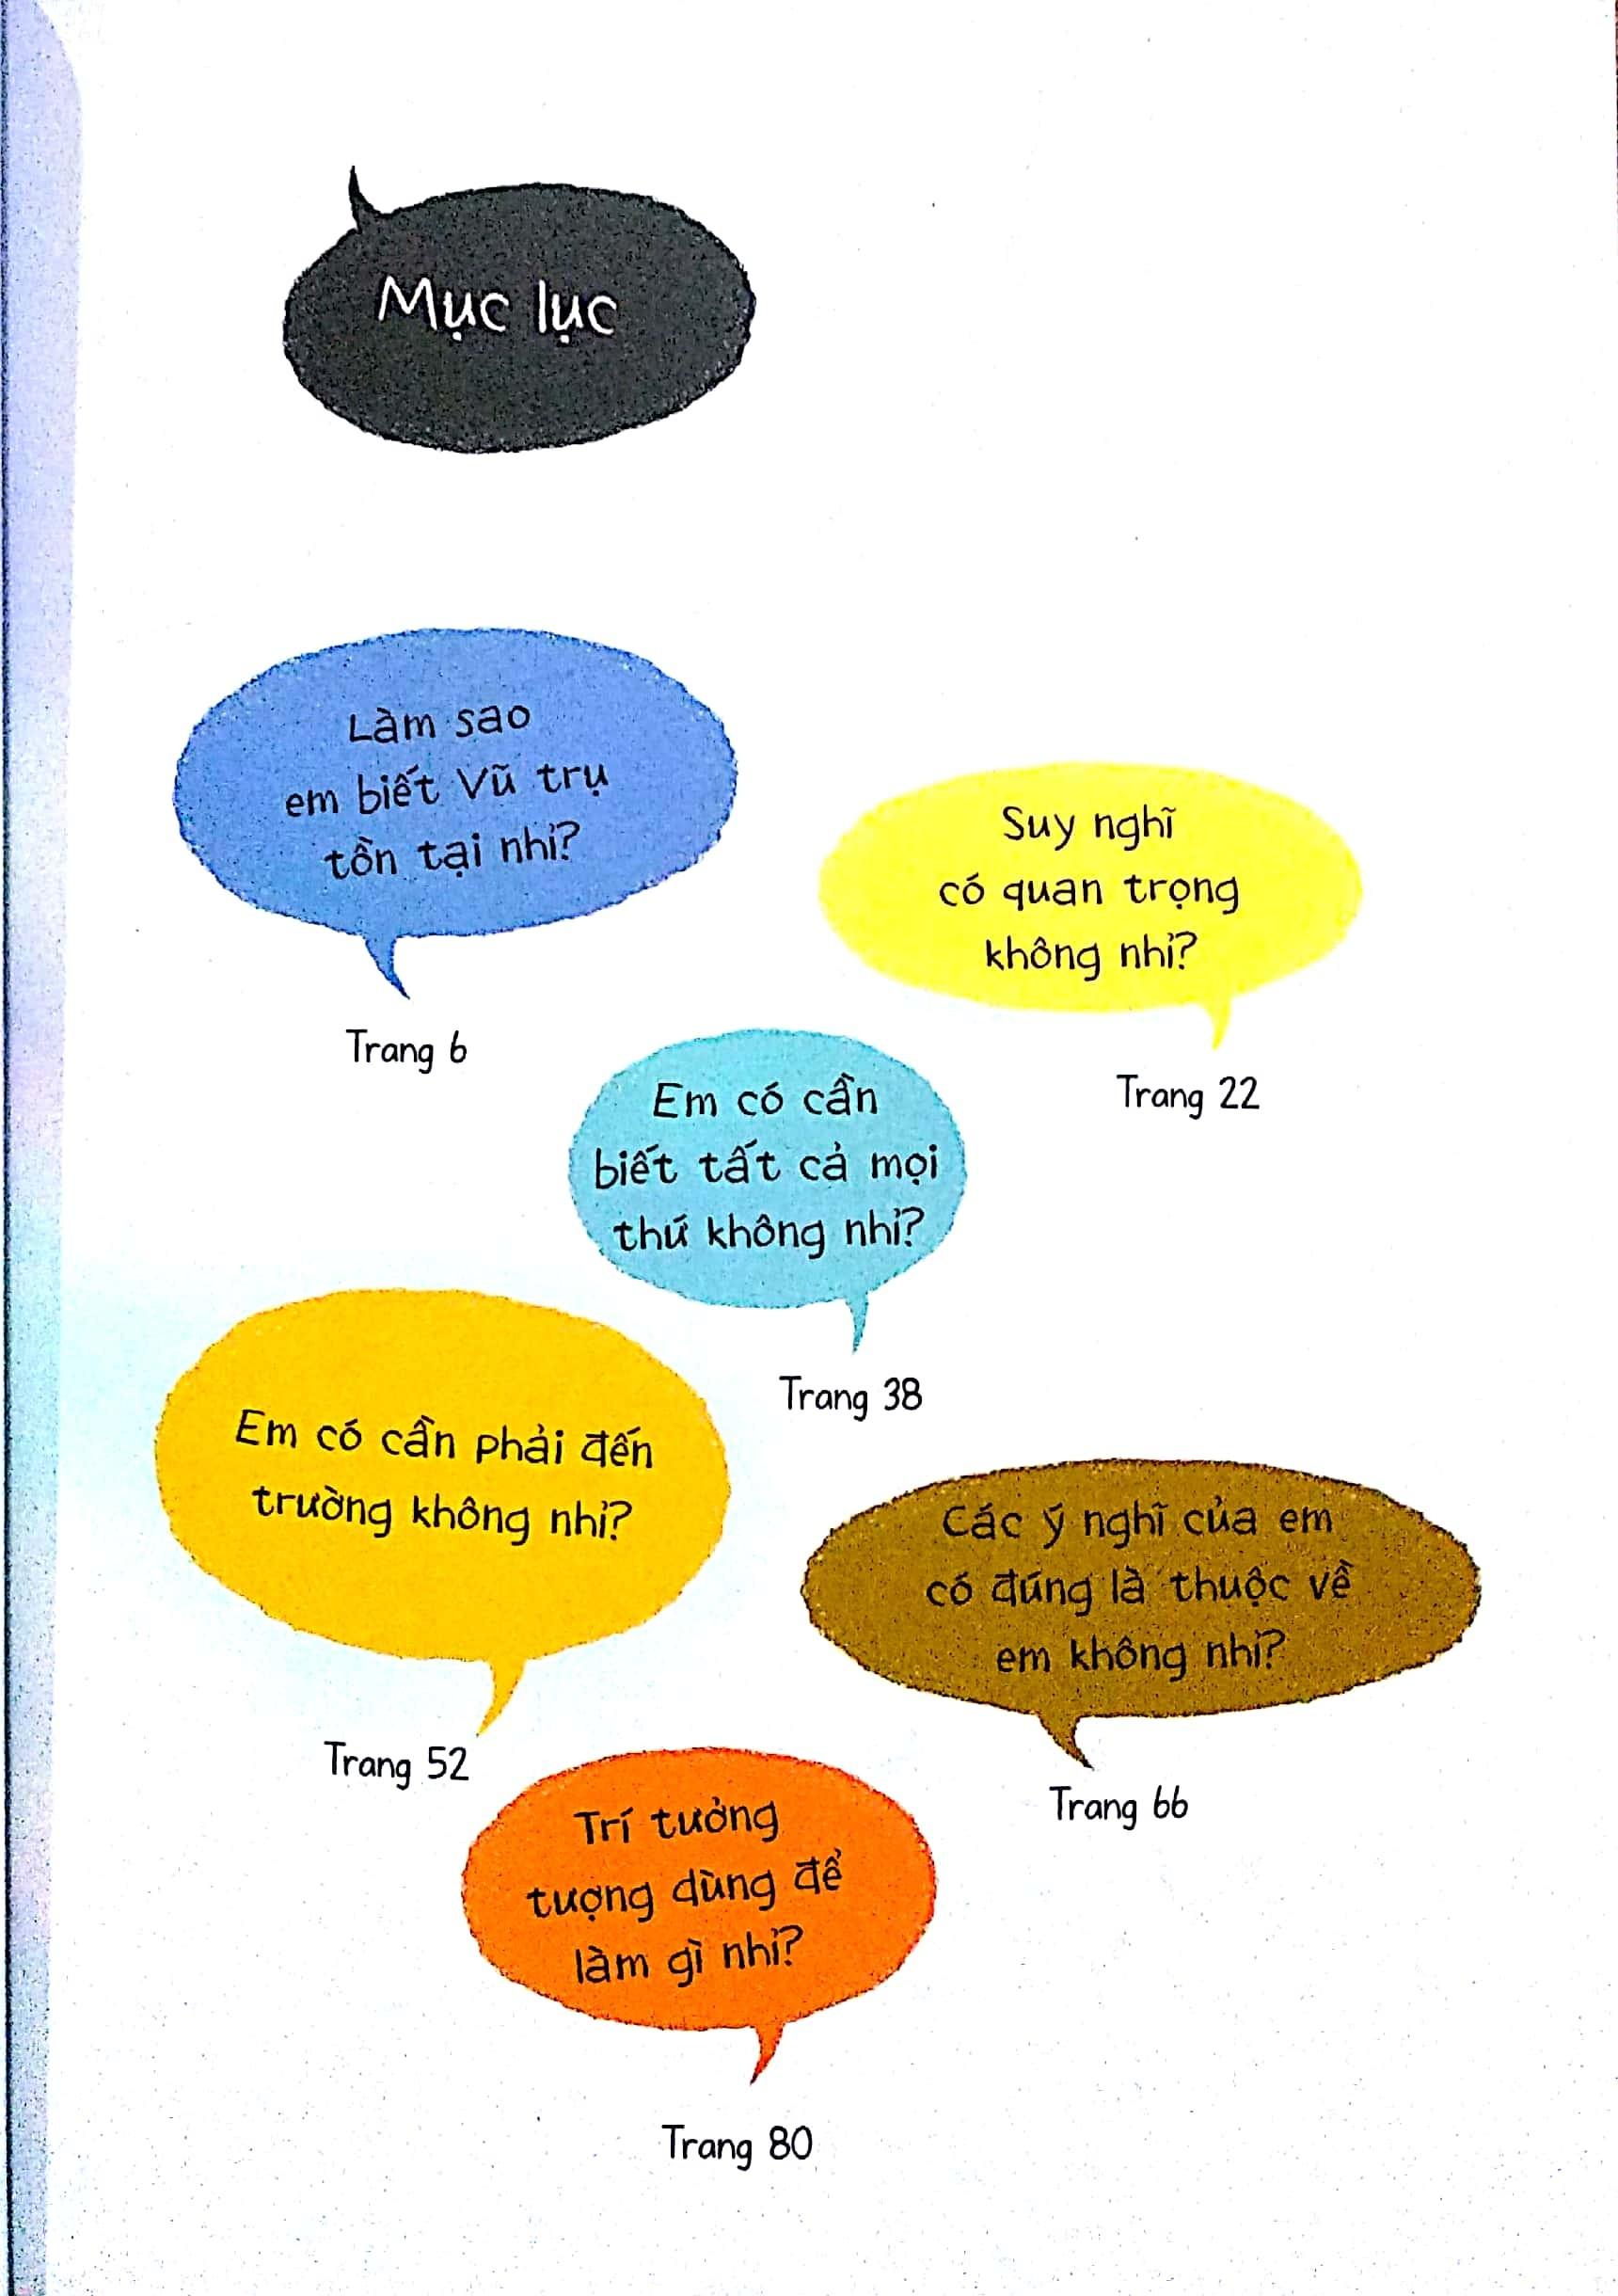 Mục lục
Làm sao
em biết Vũ trụ
tồn tại nhỉ?
Trang 6
Suy nghĩ
có quan trọng
không nhỉ?
Trang 22
Em có cần
biết tất cả mọi
thứ không nhỉ?
Trang 38
Em có cần phải đến
trường không nhỉ?
Trang 52
Các ý nghĩ của em
có đúng là thuộc về
em không nhỉ?
Trang 66
Trí tưởng
tượng dùng để
làm gì nhỉ?
Trang 80